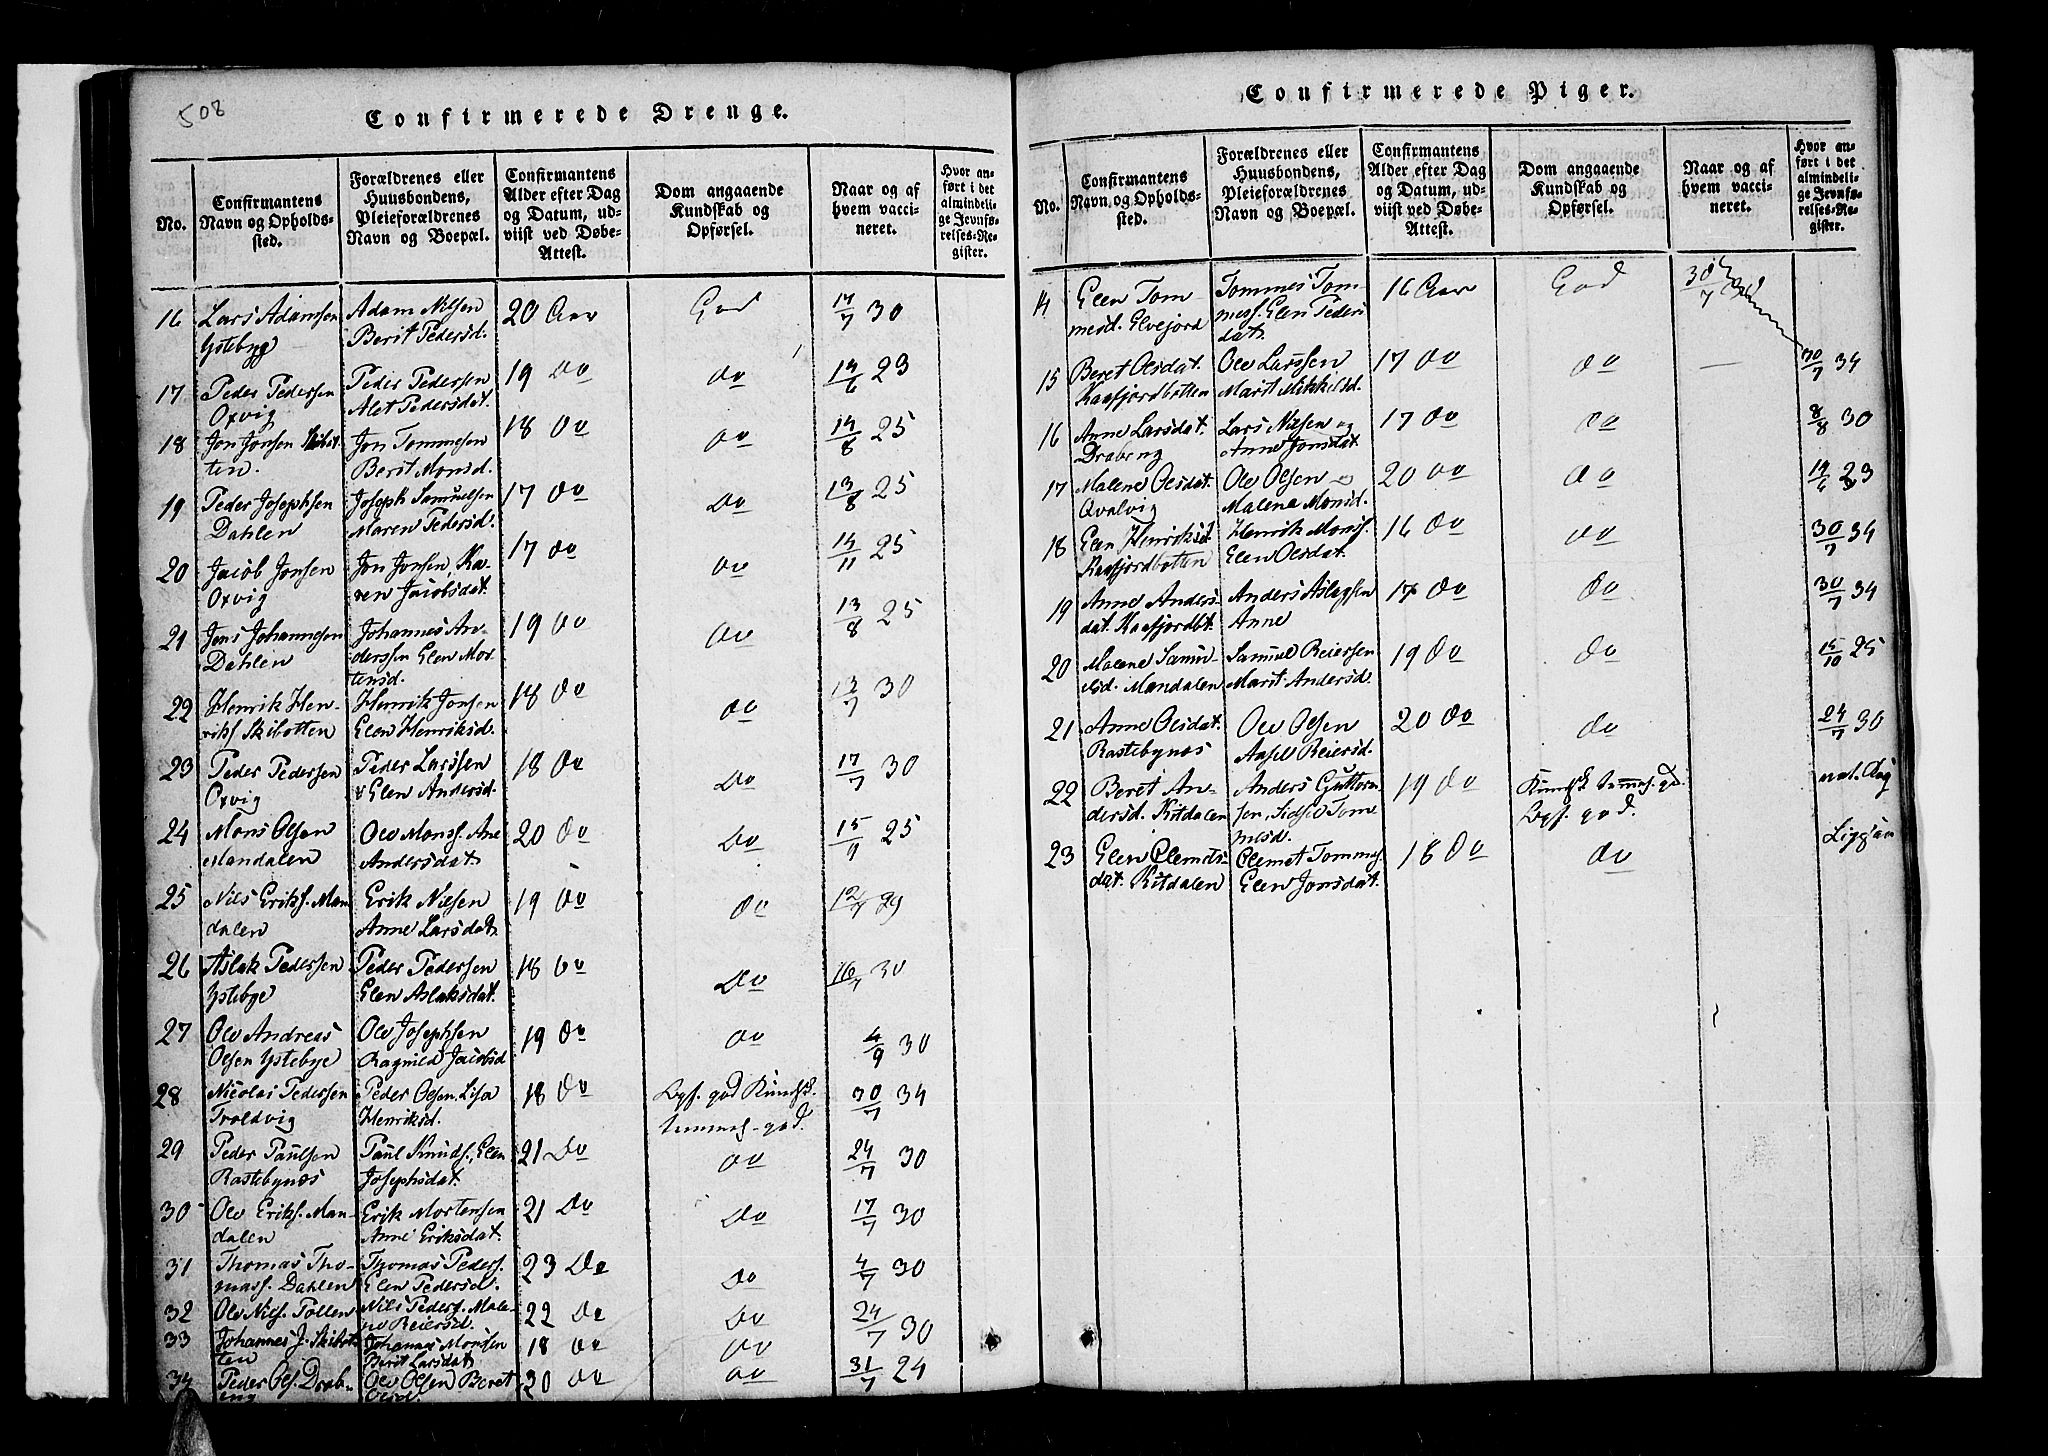 508
Confirmerede Drenge.
No.
Confirmantens
Navn og Opholds-
sted.
Forældrenes eller
Huusbondens,
Pleieforældrenes
Navn og Boepæl.
Confirmantens
Alder efter Dag
og Datum, ud-
viist ved Døbe-
Attest.
Dom angaaende
Kundskab og
Opførsel.
Naar og af
hvem vacci-
neret.
Hvor an-
ført i det
almindeli-
ge Jevnfø-
relses-Re-
gister.
16 Lars Adamsen Adam Nilsen 20 Aar God 17/7 30
Ystebye Berit Pedersd.
17 Peder Pedersen Peder Pedersen 19 do do 14/6 23
Oxvig Alet Pedersdat.
18 Jon Jonsen Skibot- Jon Tommesen 18 do do 14/8 25
ten. Berit Monsd.
19 Peder Josephsen Joseph Samuelsen 17 do do 13/8 25
Dahlen Maren Pedersd.
20 Jacob Jonsen Jon Jonsen, Ka- 17 do do 14/11 25
Oxvig ren Jacobsdat.
21 Jens Johannesen Johannes An- 19 do do 13/8 25
Dahlen derssen Elen Mor-
tensd.
22 Henrik Hen- Henrik Jonsen 18 do do 13/7 30
riks. Skibotten Elen Henriksd.
23 Peder Pedersen Peder Larssen 18 do do 17/7 30
Oxvig & Elen Andersd.
24 Mons Olsen Ole Monss. Ane 20 do do 15/9 25
Mandalen Andersdat
25 Nils Eriks. Man Erik Nilsen 19 do do 12/7 29
dalen Anne Larsdat.
26 Aslak Pedersen Peder Pedersen 18 do do 16/7 30
Ystebye Elen Aslaksdat.
27 Ole Andreas Ole Josephsen 19 do do 4/9 30
Olsen Ystebye Ragnild Jacobsd
28 Nicolai Pedersen Peder Olsen, Lisa 18 do Opf. god Kundsk. 30/7 34
Troldvig Henriksd. temmel. god.
29 Peder Paulsen Paul Knuds., Elen 21 do do 24/7 30
Rastebynæs Josephsdat.
30 Ole Eriks. Man- Erik Mortensen 21 do do 17/7 30
dalen Anne Eriksdat.
31 Thomas Tho- Thomas Peders. 23 do do 4/7 30
mass. Dahlen Elen Pedersd.
32 Ole Nils. Pollen Nils Peders. Male- 22 do do 24/7 30
ne Reiersd.
33 Johannes J. Skibot- Johanas Monsen 18 do do
ten Berit Larsdat
34 Peder Ols. Drab- Ole Olsen Beret 20 do do 31/7 24
eng Olesd.
Confirmerede Piger.
No.
Confirmantens
Navn, og Opholds-
sted.
Forældrenes eller
Huusbondens,
Pleieforældrenes
Navn og Boepæl.
Confirmantens
Alder efter Dag
og Datum, ud-
viist ved Døbe-
Attest.
Dom angaaende
Kundskab og
Opførsel.
Naar og af
hvem vacci-
neret.
Hvor an-
ført i det
almindeli-
ge Jevnfø-
relses-Re-
gister.
14 Elen Tom- Tommes Tom- 16 Aar God 30/7
mesd. Elvejord mess. Elen Peders
dat.
15 Beret Olsdat. Ole Larssen 17 do do — 30/7 34
Kaafjordbotten Marit Mikkelsd.
16 Anne Larsdat. Lars Nilsen og 17 do do 8/8 30
Drabeng Anne Jonsdat.
17 Malene Olsdat. Ole Olsen 20 do do 14/6 23
Qvalvig Malene Monsd.
18 Elen Henriksd. Henrik Monss. 16 do do 30/7 34
Kaafjordbotten Elen Olsdat.
19 Anne Anders Anders Aslagsen 17 do do 30/7 34
dat. Kaafjordbt. Anne
20 Malene Samu- Samuel Reiersen 19 do do 15/10 25
elsd. Mandalen Marit Andersd.
21 Anne Olsdat. Ole Olsen 20 do do 24/7 30
Rastebynæs Aasel Reiersd.
22 Beret An- Anders Guttorm 19 do Kundsk. temmel. god.
dersd. Kitdalen sen, Sidsel Tom Opf. god.
mesd.
23 Elen Clemets- Clemet Tommes. 18 do do
dat. Kitdalen Elen Jonsdat.